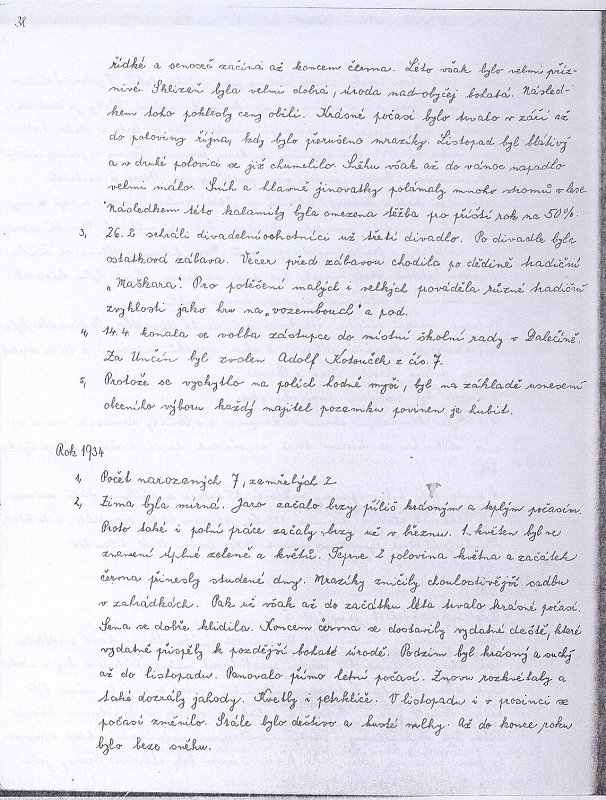 38
řídké a senoseč začíná až koncem června. Léto však bylo velmi příz-
nivé. Sklizeň byla velmi dobrá, úroda nadobyčej bohatá. Násled-
kem toho poklesly ceny obilí. Krásné počasí bylo trvalo v září až
do poloviny října, kdy bylo přerušeno mrazíky. Listopad byl blátivý
a v druhé polovici se již chumelilo. Sněhu však až do vánoc napadlo
velmi málo. Sníh a hlavně jinovatky polámaly mnoho stromů v lese.
Následkem této kalamity byla omezena těžba pro příští rok na 50%.
3, 26.2 sehráli divadelní ochotníci už třetí divadlo. Po divadle byla
ostatková zábava. Večer před zábavou chodila po dědině tradiční
„Maškara". Pro potěšení malých i velkých prováděla různé tradiční
zvyklosti jako hru na „vozembouch" a pod.
4, 14.4 konala se volba zástupce do místní školní rady v Dalečíně.
Za Unčín byl zvolen Adolf Kotouček z čís. 7.
5, Protože se vyskytlo na polích hodně myší, byl na základě usnesení
obecního výboru každý majitel pozemku povinen je hubit.
Rok 1934
1, Počet narozených 7, zemřelých 2
2, Zima byla mírná. Jaro začalo brzy příliš krásným a teplým počasím.
Proto také i polní práce začaly brzy už v březnu. 1. květen byl ve
znamení úplné zeleně a květů. Teprve 2 polovina května a začátek
června přinesly studené dny. Mrazíky zničily choulostivější sadbu
v zahrádkách. Pak už však až do začátku léta trvalo krásné počasí.
Sena se dobře klidila. Koncem června se dostavily vydatné deště, které
vydatně přispěly k pozdější bohaté úrodě. Podzim byl krásný a suchý
až do listopadu. Panovalo přímo letní počasí. Znovu rozkvétaly a
také dozrály jahody. Kvetly i petrklíče. V listopadu i v prosinci se
počasí změnilo. Stále bylo deštivo a husté mlhy. Až do konce roku
bylo beze sněhu.